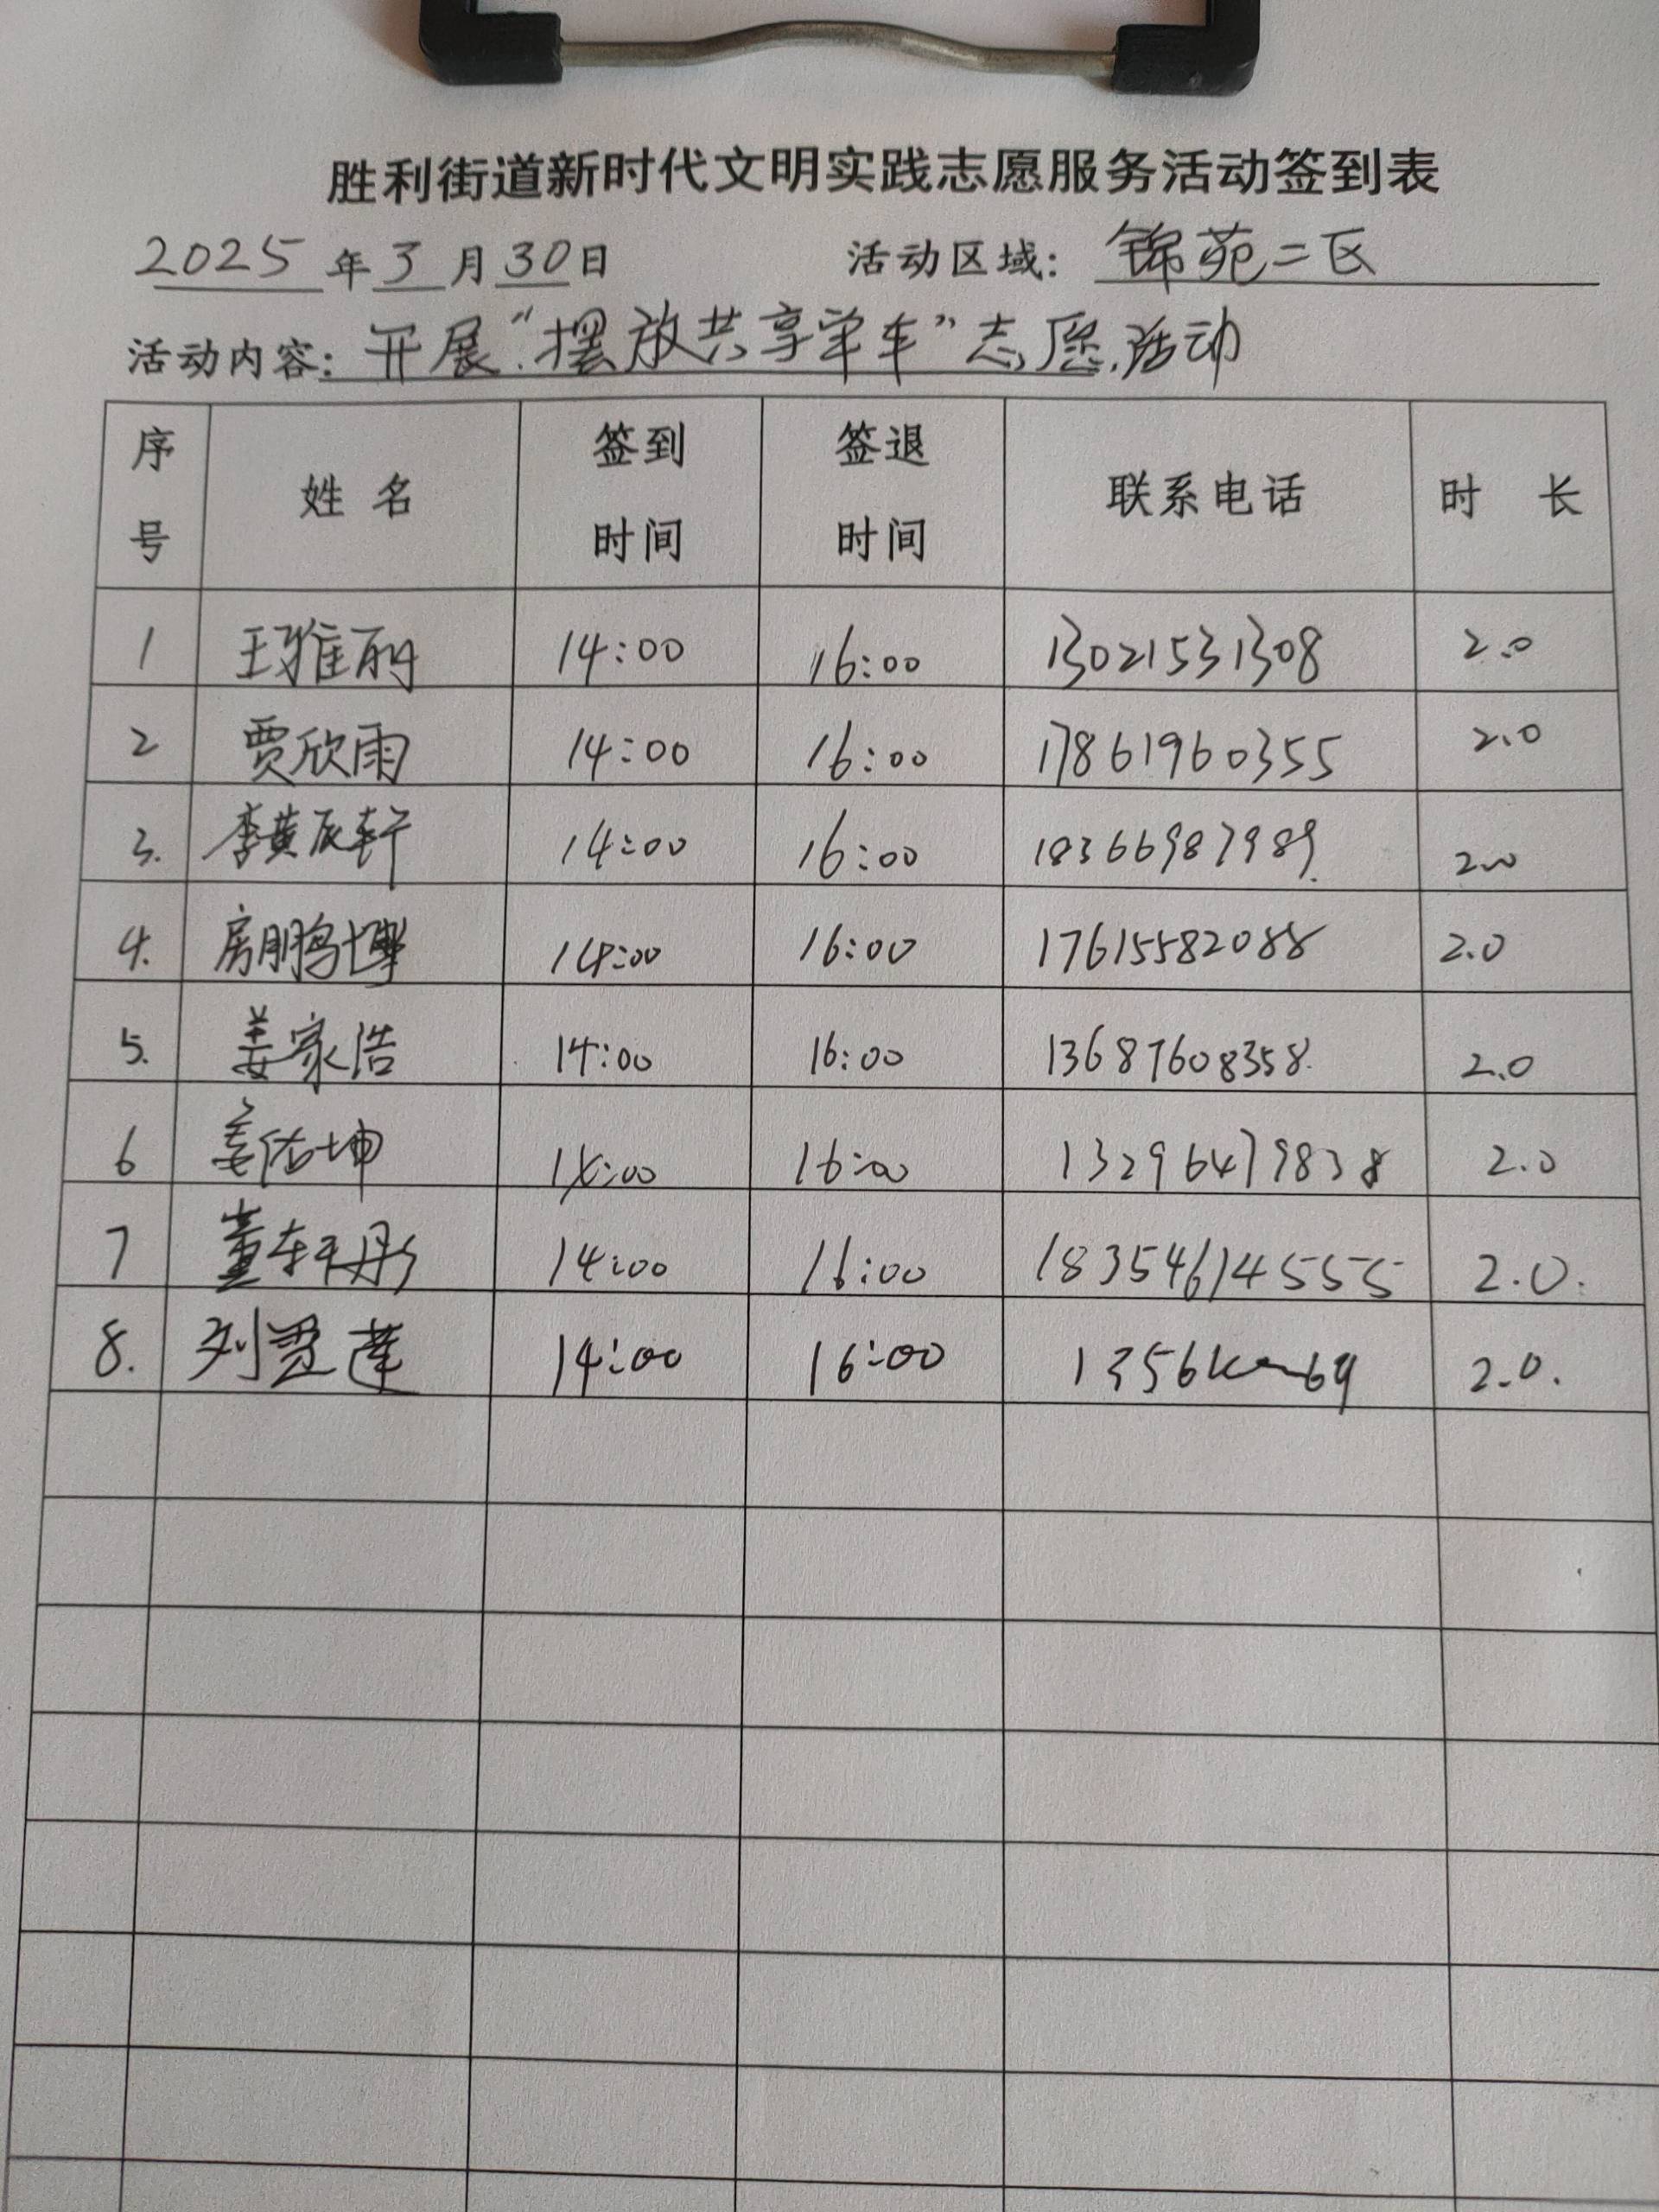 胜利街道新时代文明实践志愿服务活动签到表
2025年3月30日 活动区域：锦苑二区
活动内容：开展“摆放共享单车”志愿活动
序号 姓名 签到时间 签退时间 联系电话 时长
1 王雅丽 14:00 16:00 13021531308 2.0
2 贾欣雨 14:00 16:00 17861960355 2.0
3. 李黄辰轩 14:00 16:00 18366987989 2.0
4. 房鹏博 14:00 16:00 17615582088 2.0
5. 姜家浩 14:00 16:00 13687608358 2.0
6 姜佑坤 14:00 16:00 13296479838 2.0
7 董轩彤 14:00 16:00 18354614555 2.0.
8. 刘 莲 14:00 16:00 2.0.